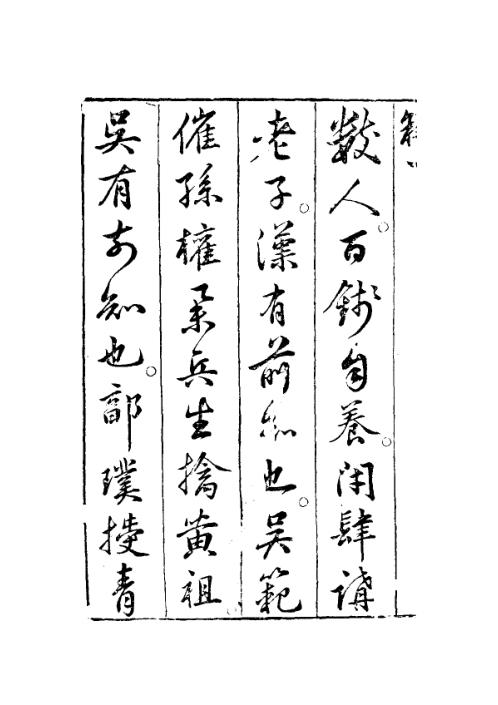 數人。百錢自養。閉肆講
老子。漢有前知也。吳範
催孫權兵生擒黃祖
吳有前知也。郭璞授青